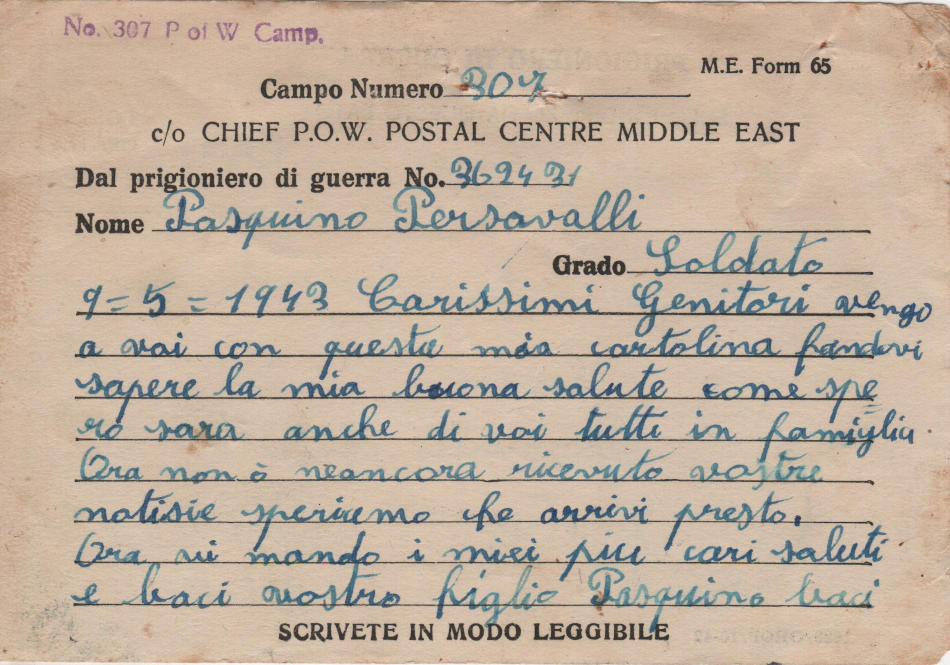 No. 307 P of W Camp.
M.E. Form 65
Campo Numero 307
c/o CHIEF P.O.W. POSTAL CENTRE MIDDLE EAST
Dal prigioniero di guerra No. 362431
Nome Pasquino Persavalli
Grado Soldato
9=5=1943 Carissimi Genitori vengo
a voi con questa mia cartolina fandovi
sapere la mia buona salute come spe=
ro sara anche di voi tutti in famiglia
Ora non ò neancora ricevuto vostre
notisie speriamo che arrivi presto.
Ora vi mando i miei più cari saluti
e baci vostro figlio Pasquino baci
SCRIVETE IN MODO LEGGIBILE